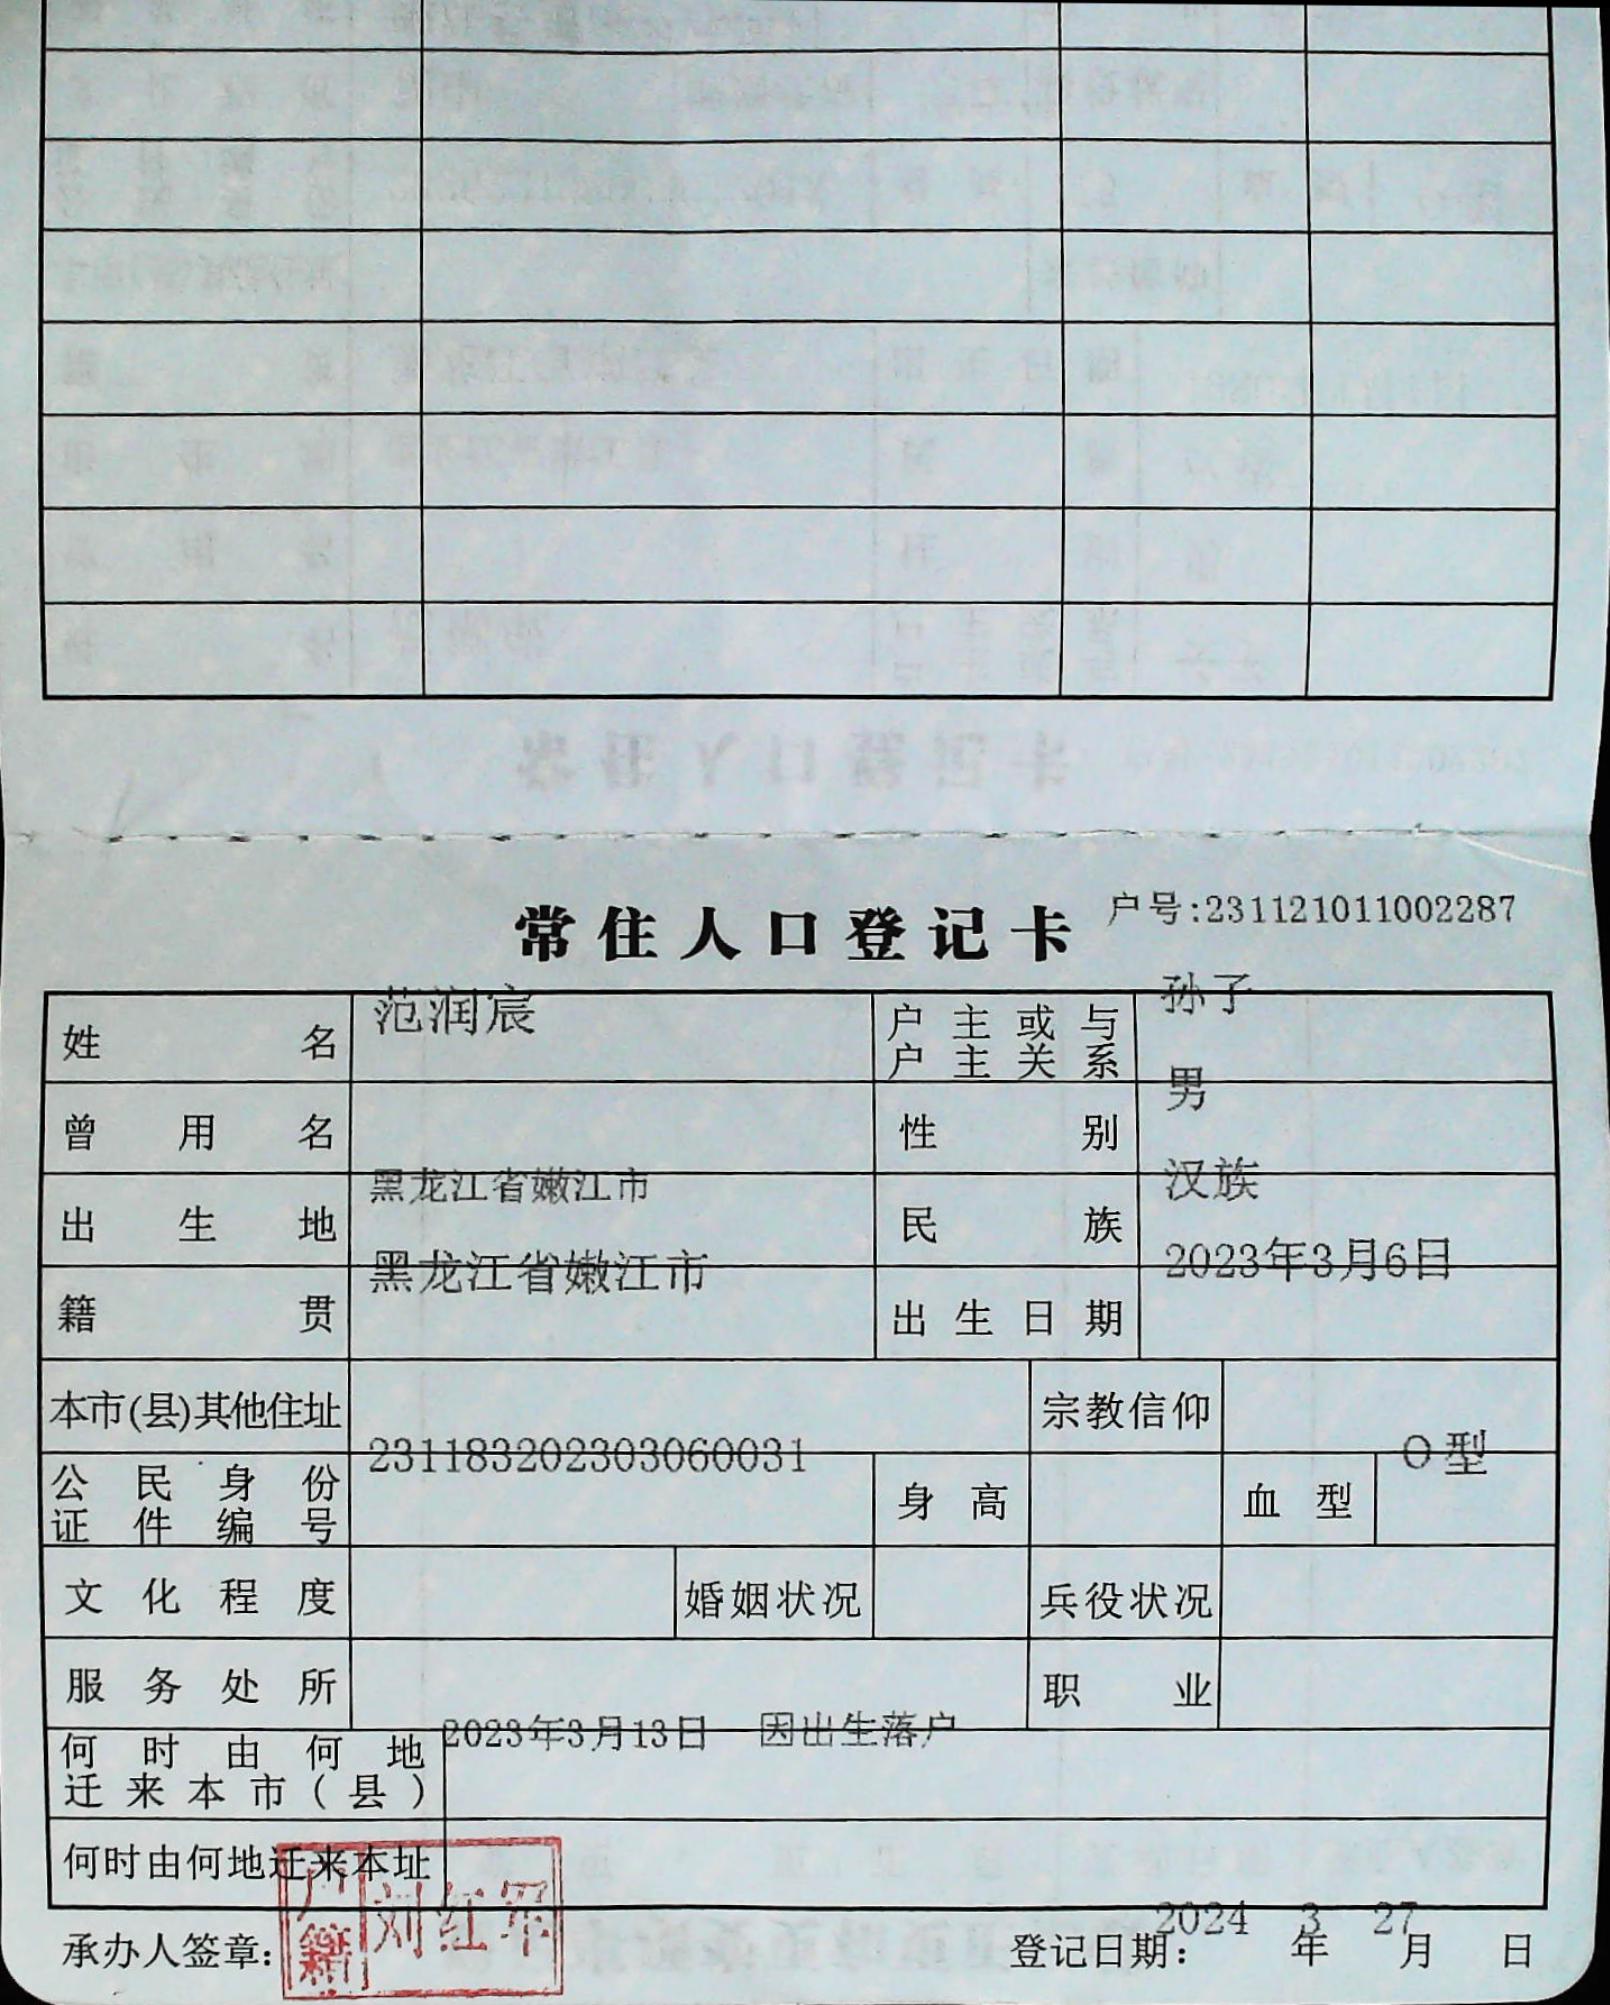 常住人口登记卡 户号:231121011002287
姓名 范润宸 户主或与户主关系 孙子
曾用名 性别 男
出生地 黑龙江省嫩江市 民族 汉族
籍贯 黑龙江省嫩江市 出生日期 2023年3月6日
本市(县)其他住址 宗教信仰
公民身份证件编号 231183202303060031 身高 血型 O型
文化程度 婚姻状况 兵役状况
服务处所 职业
何时由何地迁来本市(县) 2023年3月13日 因出生落户
何时由何地迁来本址
承办人签章: 户籍 刘红军 登记日期: 2024年3月27日